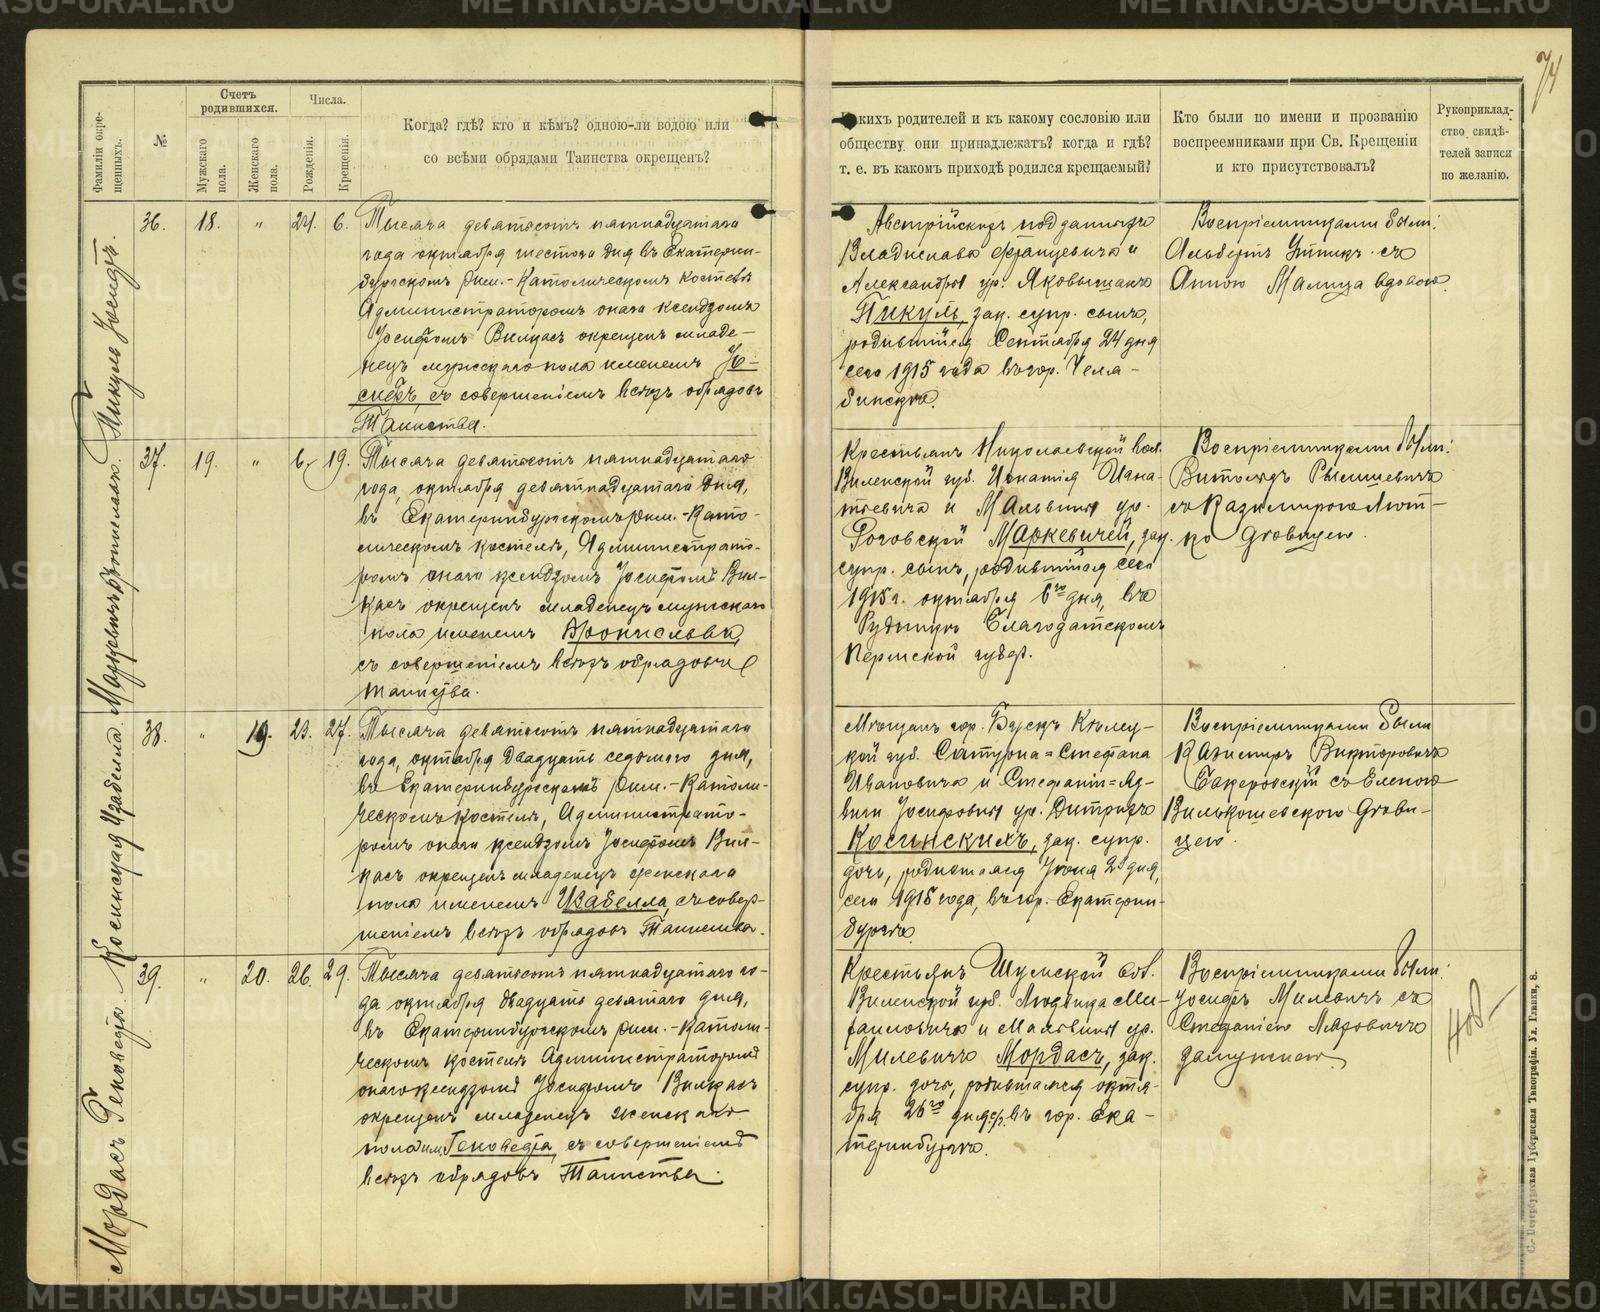 74
Фамиліи окре-
щенныхъ.
№
Счетъ
родившихся.
Мужскаго
пола.
Женскаго
пола.
Числа.
Рожденія.
Крещенія.
Когда? гдѣ? кто и кѣмъ? одною-ли водою или
со всѣми обрядами Таинства окрещенъ?
Какихъ родителей и къ какому сословію или
обществу они принадлежатъ? когда и гдѣ?
т. е. въ какомъ приходѣ родился крещаемый?
Кто были по имени и прозванію
воспреемниками при Св. Крещеніи
и кто присутствовалъ?
Рукоприклад-
ство свидѣ-
телей записи
по желанію.
Пикуль Іосифъ.
36. 18. „ 24. 6.
Тысяча девятьсотъ пятнадцатаго
года октября шестого дня въ Екатерин-
бургскомъ Рим.-Католическомъ костелѣ
Администраторомъ онаго ксендзомъ
Іосифомъ Вилкасъ окрещенъ младе-
нецъ мужскаго пола именемъ Іо-
сифъ, съ совершеніемъ всѣхъ обрядовъ
Таинства.
Австрійскихъ подданныхъ
Владислава Францевича и
Александры ур.
Пикуль, зак. супр. сынъ,
родившійся Сентября 24 дня
сего 1915 года въ гор. Челя-
бинскѣ.
Воспріемниками были:
Альбертъ съ
Анною Малица вдовою.
Маркевичъ Брониславъ.
37. 19. „ 6. 19.
Тысяча девятьсотъ пятнадцатаго
года, октября девятнадцатаго дня,
въ Екатеринбургскомъ Рим.-Като-
лическомъ костелѣ, Администрато-
ромъ онаго ксендзомъ Іосифомъ Вил-
касъ окрещенъ младенецъ мужскаго
пола именемъ Брониславъ
съ совершеніемъ всѣхъ обрядовъ
таинства.
Крестьянъ Николаевской вол.
Виленской губ. Игнатія Игна-
тьевича и Мальвины ур.
Роговской Маркевичей, зак.
супр. сынъ, родившійся сего
1915 г. октября 6го дня, въ
Рудникѣ Благодатскомъ
Пермской губер.
Воспріемниками были:
Витольдъ
съ Казимирою
дѣвицею.
Косинская Изабелла.
38. „ 19. 23. 27.
Тысяча девятьсотъ пятнадцатаго
года, октября двадцать седьмого дня,
въ Екатеринбургскомъ Рим.-Католи-
ческомъ костелѣ, Администрато-
ромъ онаго ксендзомъ Іосифомъ Вил-
касъ окрещенъ младенецъ женскаго
пола именемъ Изабелла, съ совер-
шеніемъ всѣхъ обрядовъ Таинства.
Мѣщанъ гор. Бускъ Кѣлец-
кой губ. Сатурна=Стефана
Ивановича и Стефаніи=Яд-
виги Іосифовны ур. Дитрихъ
Косинскихъ, зак. супр.
дочь, родившаяся Іюня 23 дня,
сего 1915 года, въ гор. Екатерин-
бургѣ.
Воспріемниками были
Казимиръ Викторовичъ
съ Еленою
дѣви-
цею.
Мордасъ Геновефа.
39. „ 20. 26. 29.
Тысяча девятьсотъ пятнадцатаго го-
да октября двадцать девятаго дня,
въ Екатеринбургскомъ Рим.-Католи-
ческомъ костелѣ Администраторомъ
онаго ксендзомъ Іосифомъ Вилкасъ
окрещенъ младенецъ женскаго
пола им. Геновефа, съ совершеніемъ
всѣхъ обрядовъ Таинства.
Крестьянъ Шумской вол.
Виленской губ. Людвига Ми-
хаиловича и Мальвины ур.
Милевичъ Мордасъ, зак.
супр. дочь, родившаяся октя-
бря 26го дня с.г. въ гор. Ека-
теринбургѣ.
Воспріемниками были:
Іосифъ Милевичъ съ
Стефаніею
замужнею.
С.-Петербургская Губернская Типографія. Ул. Глинки, 8.
METRIKI.GASO-URAL.RU